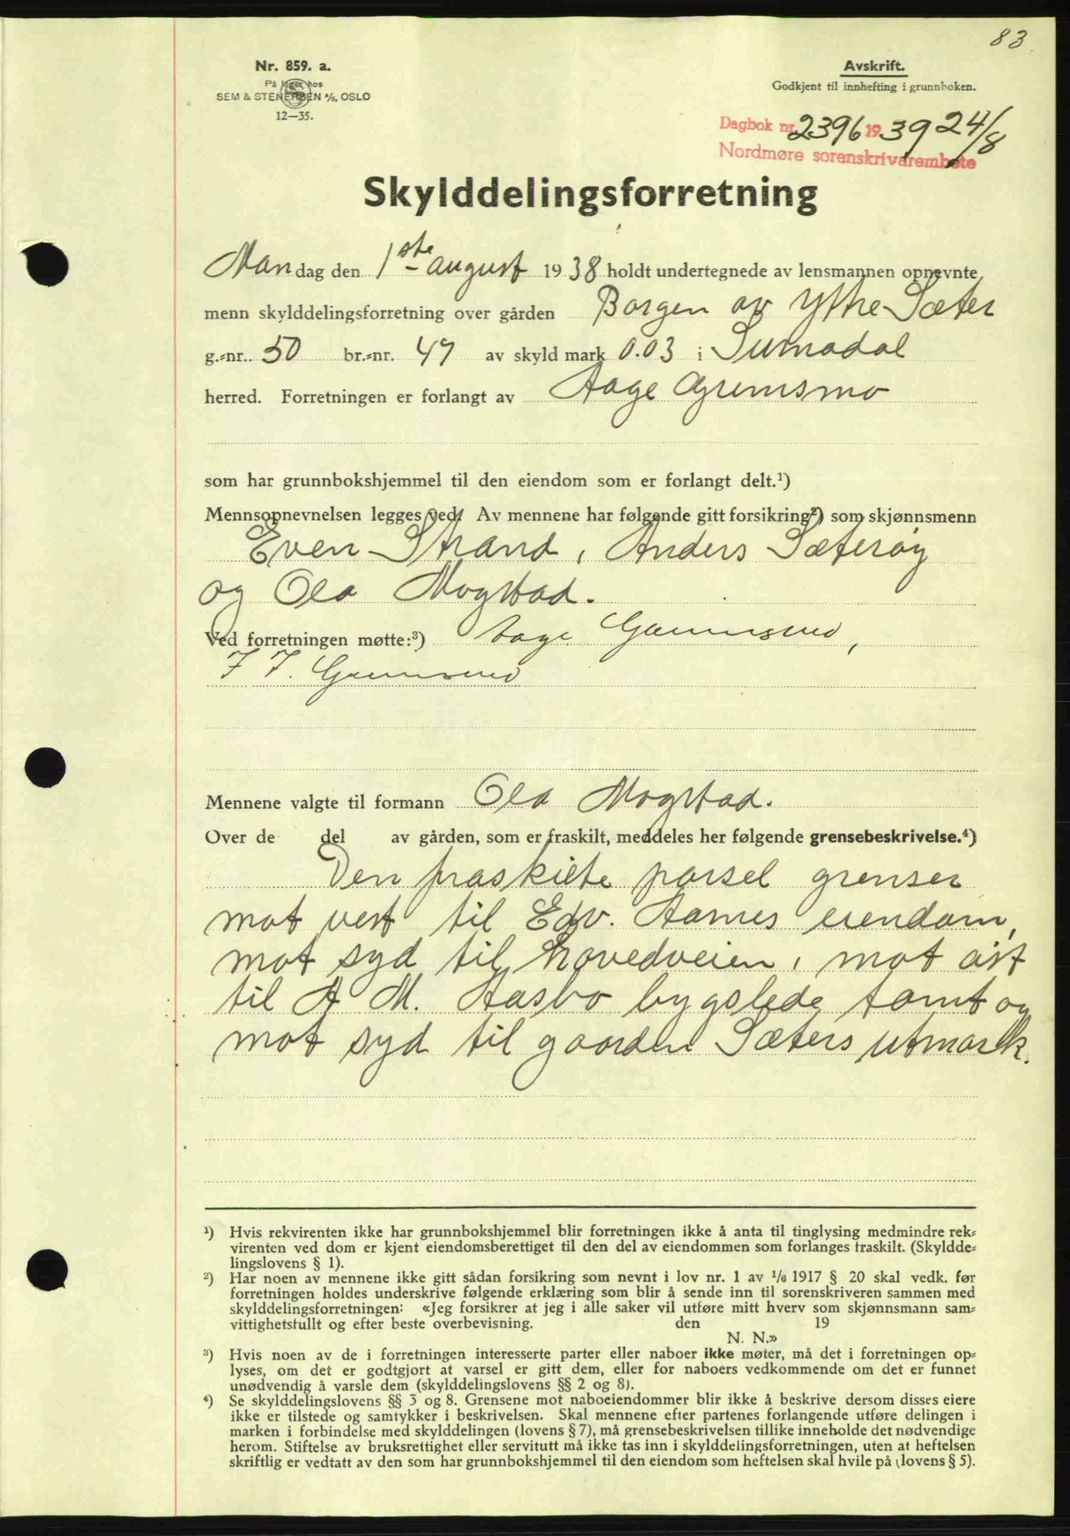 83
Nr. 859. a.
På lager hos
SEM & STENERSEN A/S, OSLO
12—35.
Avskrift.
Godkjent til innhefting i grunnboken.
Dagbok nr. 2396 1939 24/8
Nordmøre sorenskriverembete
Skylddelingsforretning
Mandag den 1ste august 1938 holdt undertegnede av lensmannen opnevnte
menn skylddelingsforretning over gården Borgen av Ytre-Sæter
g.-nr. 50 br.-nr. 47 av skyld mark 0.03 i Surnadal
herred. Forretningen er forlangt av Aage Grimsmo
som har grunnbokshjemmel til den eiendom som er forlangt delt.¹)
Mennsopnevnelsen legges ved. Av mennene har følgende gitt forsikring²) som skjønnsmenn
Even Strand, Anders Sæterøy
og Ola Mogstad.
Ved forretningen møtte:³) Aage Grimsmo,
J J. Grimsmo
Mennene valgte til formann Ola Mogstad.
Over de del av gården, som er fraskilt, meddeles her følgende grensebeskrivelse.⁴)
Den fraskilte parsel grenser
mot vest til Edv. Aarnes eiendom,
mot syd til hovedveien, mot øst
til A M. Aasbø bygslede tomt og
mot syd til gaarden Sæters utmark.
¹) Hvis rekvirenten ikke har grunnbokshjemmel blir forretningen ikke å anta til tinglysing medmindre rek-
virenten ved dom er kjent eiendomsberettiget til den del av eiendommen som forlanges fraskilt. (Skyldde-
lingslovens § 1).
²) Har noen av mennene ikke gitt sådan forsikring som nevnt i lov nr. 1 av 1/6 1917 § 20 skal vedk. før
forretningen holdes underskrive følgende erklæring som blir å sende inn til sorenskriveren sammen med
skylddelingsforretningen: «Jeg forsikrer at jeg i alle saker vil utføre mitt hverv som skjønnsmann sam-
vittighetsfullt og efter beste overbevisning. den 19
N. N.»
³) Hvis noen av de i forretningen interesserte parter eller naboer ikke møter, må det i forretningen op-
lyses, om det er godtgjort at varsel er gitt dem, eller for naboers vedkommende om det er funnet
unødvendig å varsle dem (skylddelingslovens §§ 2 og 8).
⁴) Se skylddelingslovens §§ 3 og 8. Grensene mot naboeiendommer blir ikke å beskrive dersom disses eiere
ikke er tilstede og samtykker i beskrivelsen. Skal mennene efter partenes forlangende utføre delingen i
marken i forbindelse med skylddelingen (lovens § 7), må grensebeskrivelsen tillike inneholde det nødvendige
herom. Stiftelse av bruksrettighet eller servitutt må ikke tas inn i skylddelingsforretningen, uten at heftelsen
skriftlig er vedtatt av den som har grunnbokshjemmel til den eiendom som heftelsen skal hvile på (lovens § 5).